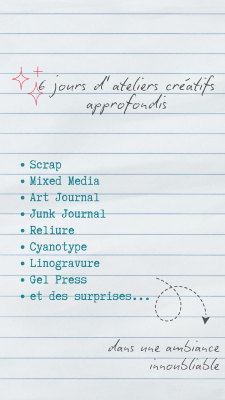 6 jours d'ateliers créatifs
approfondis
• Scrap
• Mixed Media
• Art Journal
• Junk Journal
• Reliure
• Cyanotype
• Linogravure
• Gel Press
• et des surprises...
dans une ambiance
innoubliable